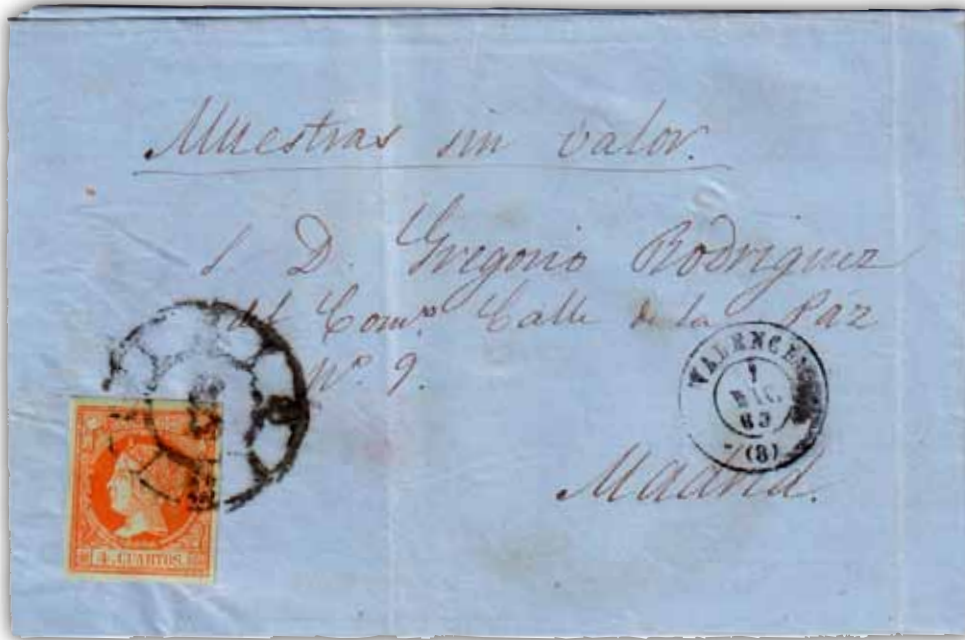 Muestras sin valor.
S. D. Gregorio Rodriguez
del Comº. Calle de la Paz
Nº. 9.
Madrid.
VALENCIA
7
DIC.
63
(8)
4 CUARTOS.